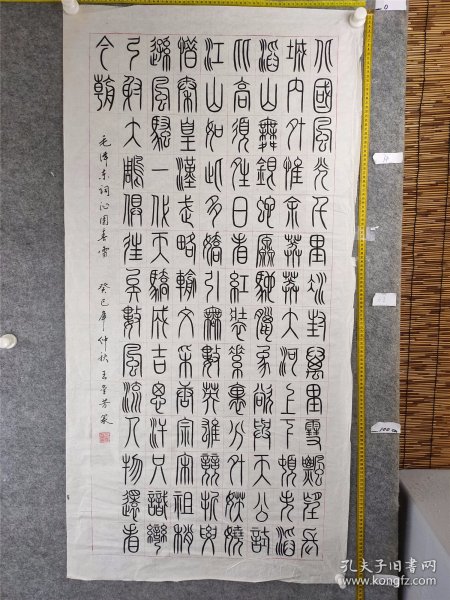 北國風光千里冰封萬里雪飄望長
城内外惟余莽莽大河上下頓失滔
滔山舞銀蛇原馳蠟象欲與天公試
比高須晴日看紅裝素裹分外妖嬈
江山如此多嬌引無數英雄競折腰
惜秦皇漢武略輸文采唐宗宋祖稍
遜風騷一代天驕成吉思汗只識彎
弓射大鵰俱往矣數風流人物還看
今朝
毛泽东词沁园春雪 癸巳年仲秋 芳篆
孔夫子旧书网
www.kongfz.com